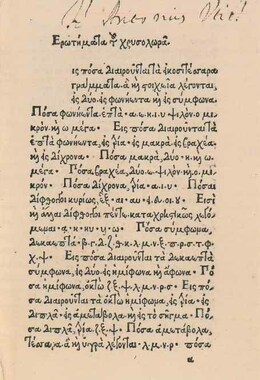 Ἐρωτήματα τοῦ χρυσολωρᾶ.
ις πόσα διαιροῦνται τὰ εἰκοσιτέσσαρα
γράμματα. ἃ ἢ στοιχεῖα λέγονται,
εἰς δύο. εἰς φωνήεντα ἢ εἰς σύμφωνα.
Πόσα φωνήεντα. ἑπτὰ· α.ε.η.ι.υ ψιλόν.ο μι
κρόν.ἢ ω μέγα· Εἰς πόσα διαιροῦνται τὰ
ἑπτὰ φωνήεντα, εἰς τρία· εἰς μακρὰ. εἰς βραχέα.
ἢ εἰς δίχρονα· Πόσα μακρὰ, δύο· η.ἢ ω
μέγα· Πόσα βραχέα, δύο. ε ψιλόν.ἢ ο μι
κρόν· Πόσα δίχρονα, τρία· α.ι.υ· Πόσαι
δίφθογγοι κυρίως, ἓξ· αι·αυ·ει·ευ·οι·ου· Εἰσὶ
ἢ ἄλλαι δίφθογγοι πέντε. καταχρηστικῶς
μεναι· ᾳ·ῃ·ηυ·υι·ω· Πόσα σύμφωνα,
δεκαεπτὰ· β·γ.δ.ζ.θ.κ.λ.μ.ν.ξ·π·ρ.σ.τ·φ·
χ.ψ· Εἰς πόσα διαιροῦνται τὰ δεκαεπτὰ
σύμφωνα, εἰς δύο· εἰς ἡμίφωνα ἢ ἄφωνα· Πό
σα ἡμίφωνα, ὀκτὼ ζ.ξ.ψ.λ.μ.ν.ρ.σ· Εἰς πό
σα διαιροῦνται τὰ ὀκτὼ ἡμίφωνα, εἰς τρία· εἰς δι
πλᾶ· εἰς ἀμετάβολα· ἢ εἰς τὸ σῆγμα· Πόσα
διπλᾶ, τρία. ζ.ξ.ψ· Πόσα ἀμετάβολα,
τέσσαρα. ἃ ἢ ὑγρὰ λέγονται· λ.μ.ν.ρ· πόσα
a